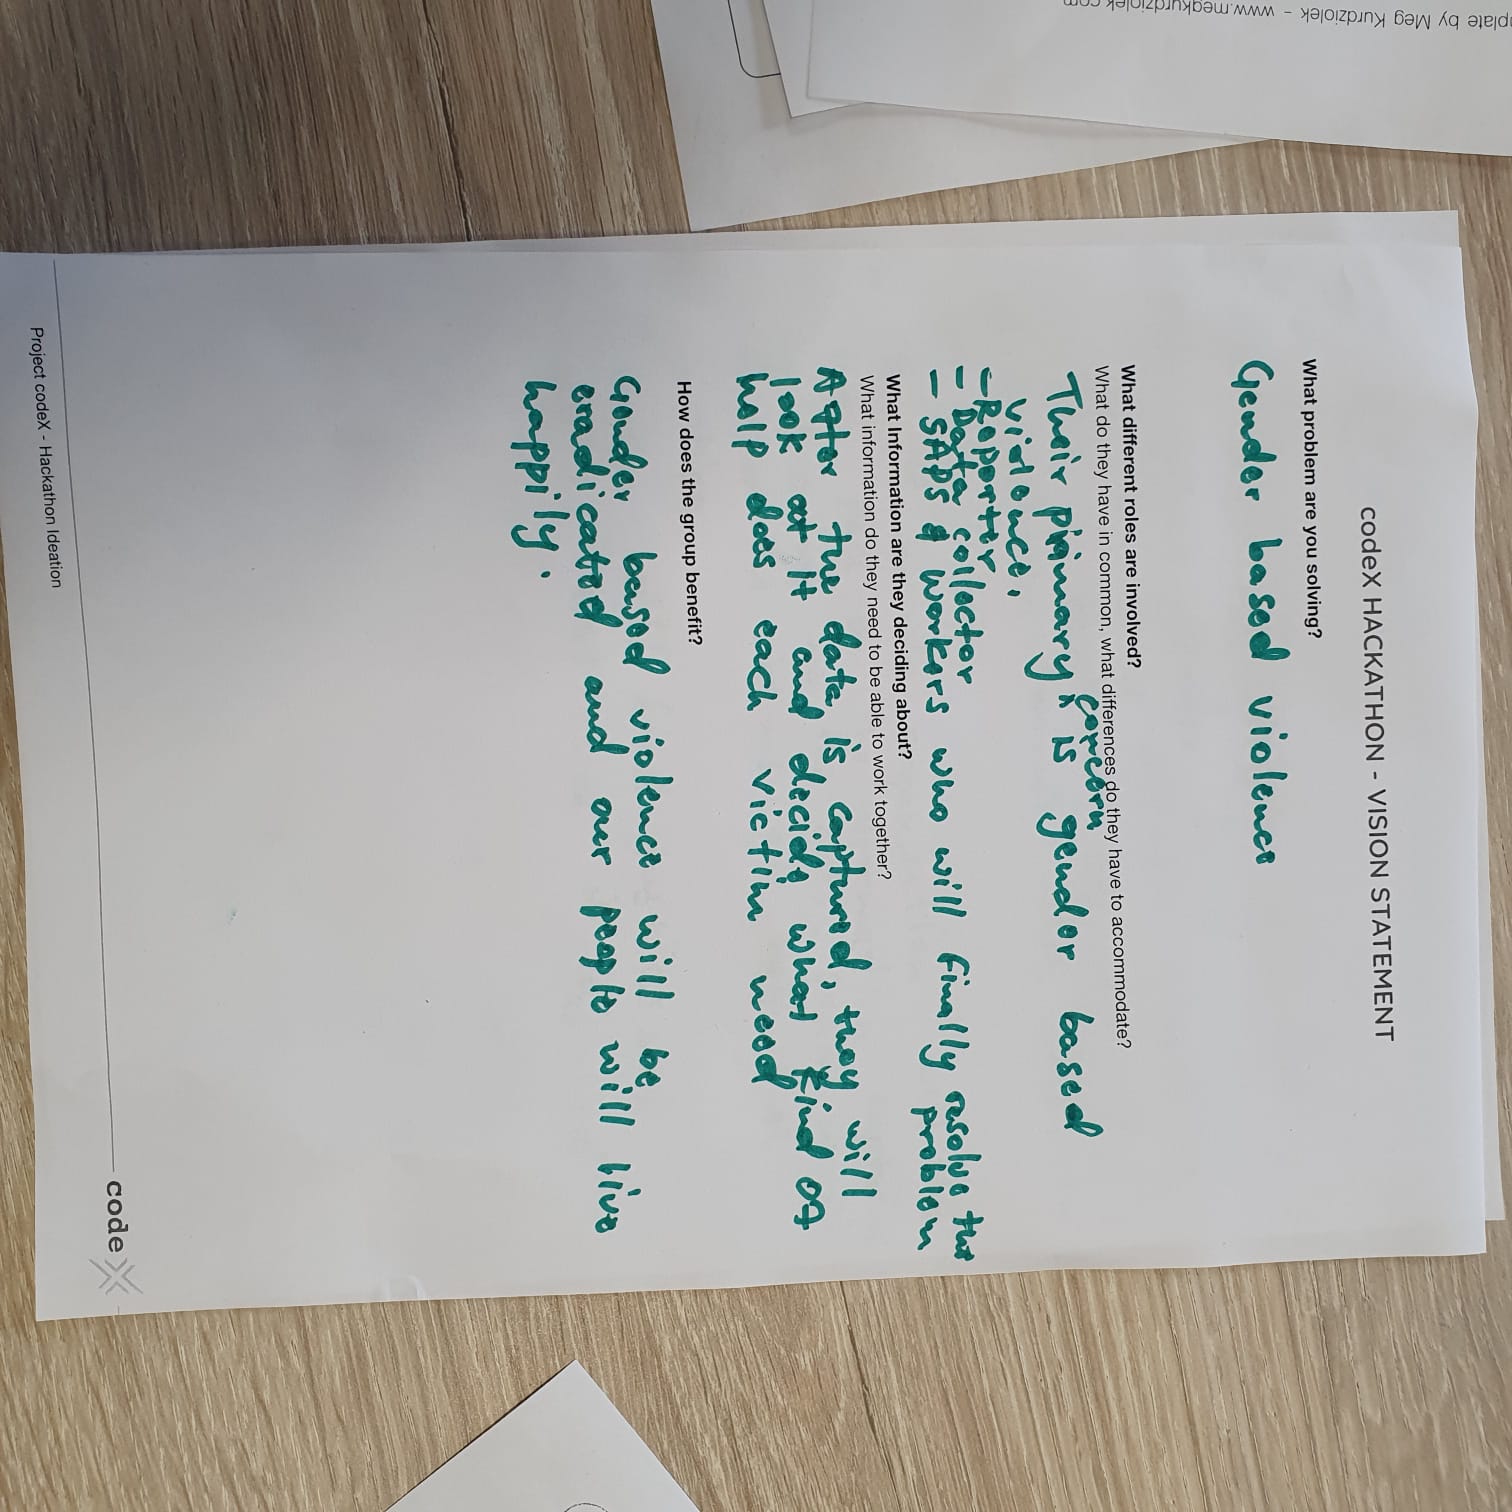 codeX HACKATHON - VISION STATEMENT
What problem are you solving?
Gender based violence
What different roles are involved?
What do they have in common, what differences do they have to accommodate?
concern
Their primary ^ is gender based
violence.
- Reporter
- Data collector
- SAPS & workers who will finally resolve the
problem
What Information are they deciding about?
What information do they need to be able to work together?
After the data is captured, they will
look at it and decide what kind of
help does each victim need
How does the group benefit?
Gender based violence will be
eradicated and our people will live
happily.
codeX
Project codeX - Hackathon Ideation
plate by Meg Kurdziolek - www.megkurdziolek.com